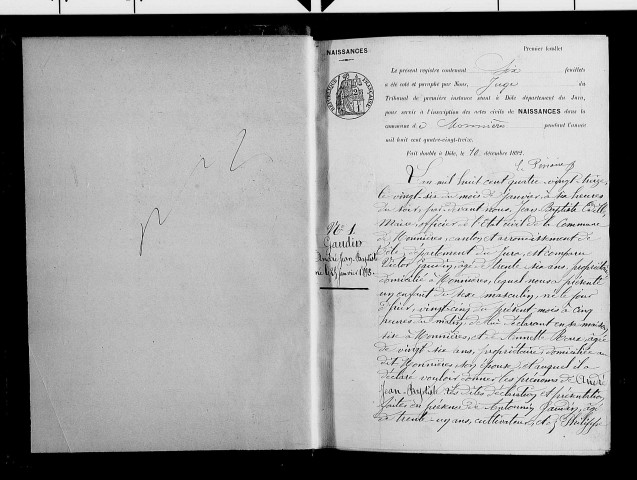 NAISSANCES
Premier feuillet
Le présent registre contenant Six feuillets
a été coté et paraphé par Nous, Juge du
Tribunal de première instance séant à Dole département du Jura,
pour servir à l'inscription des actes civils de NAISSANCES dans la
commune de Monnières pendant l'année
mil huit cent quatre-vingt-treize.
Fait double à Dôle, le 10 décembre 1892.
RÉPUBLIQUE FRANÇAISE
N° 1
Gaudin
André Jean Baptiste
né le 25 janvier 1893.
L'an mil huit cent quatre vingt treize,
le vingt six du mois de Janvier, à six heures
du soir, par devant nous, Jean Baptiste
Maire, officier de l'Etat civil de la Commune
de Monnières, canton et arrondissement de
Dole, département du Jura, est comparu
Victor Gaudin, âgé de trente six ans, propriétaire
domicilié à Monnières, lequel nous a présenté
un enfant du sexe masculin, né le jour
d'hier, vingt cinq du présent mois à cinq
heures du matin, de lui déclarant en sa maison
sise à Monnières, et de Annette âgée
de vingt six ans, propriétaire, domiciliée au
dit Monnières son épouse, et auquel il a
déclaré vouloir donner les prénoms de André
Jean Baptiste. Les dites déclaration et présentation
faites en présence de Antonin Gaudin, âgé
de trente-un ans, cultivateur, et Philippe